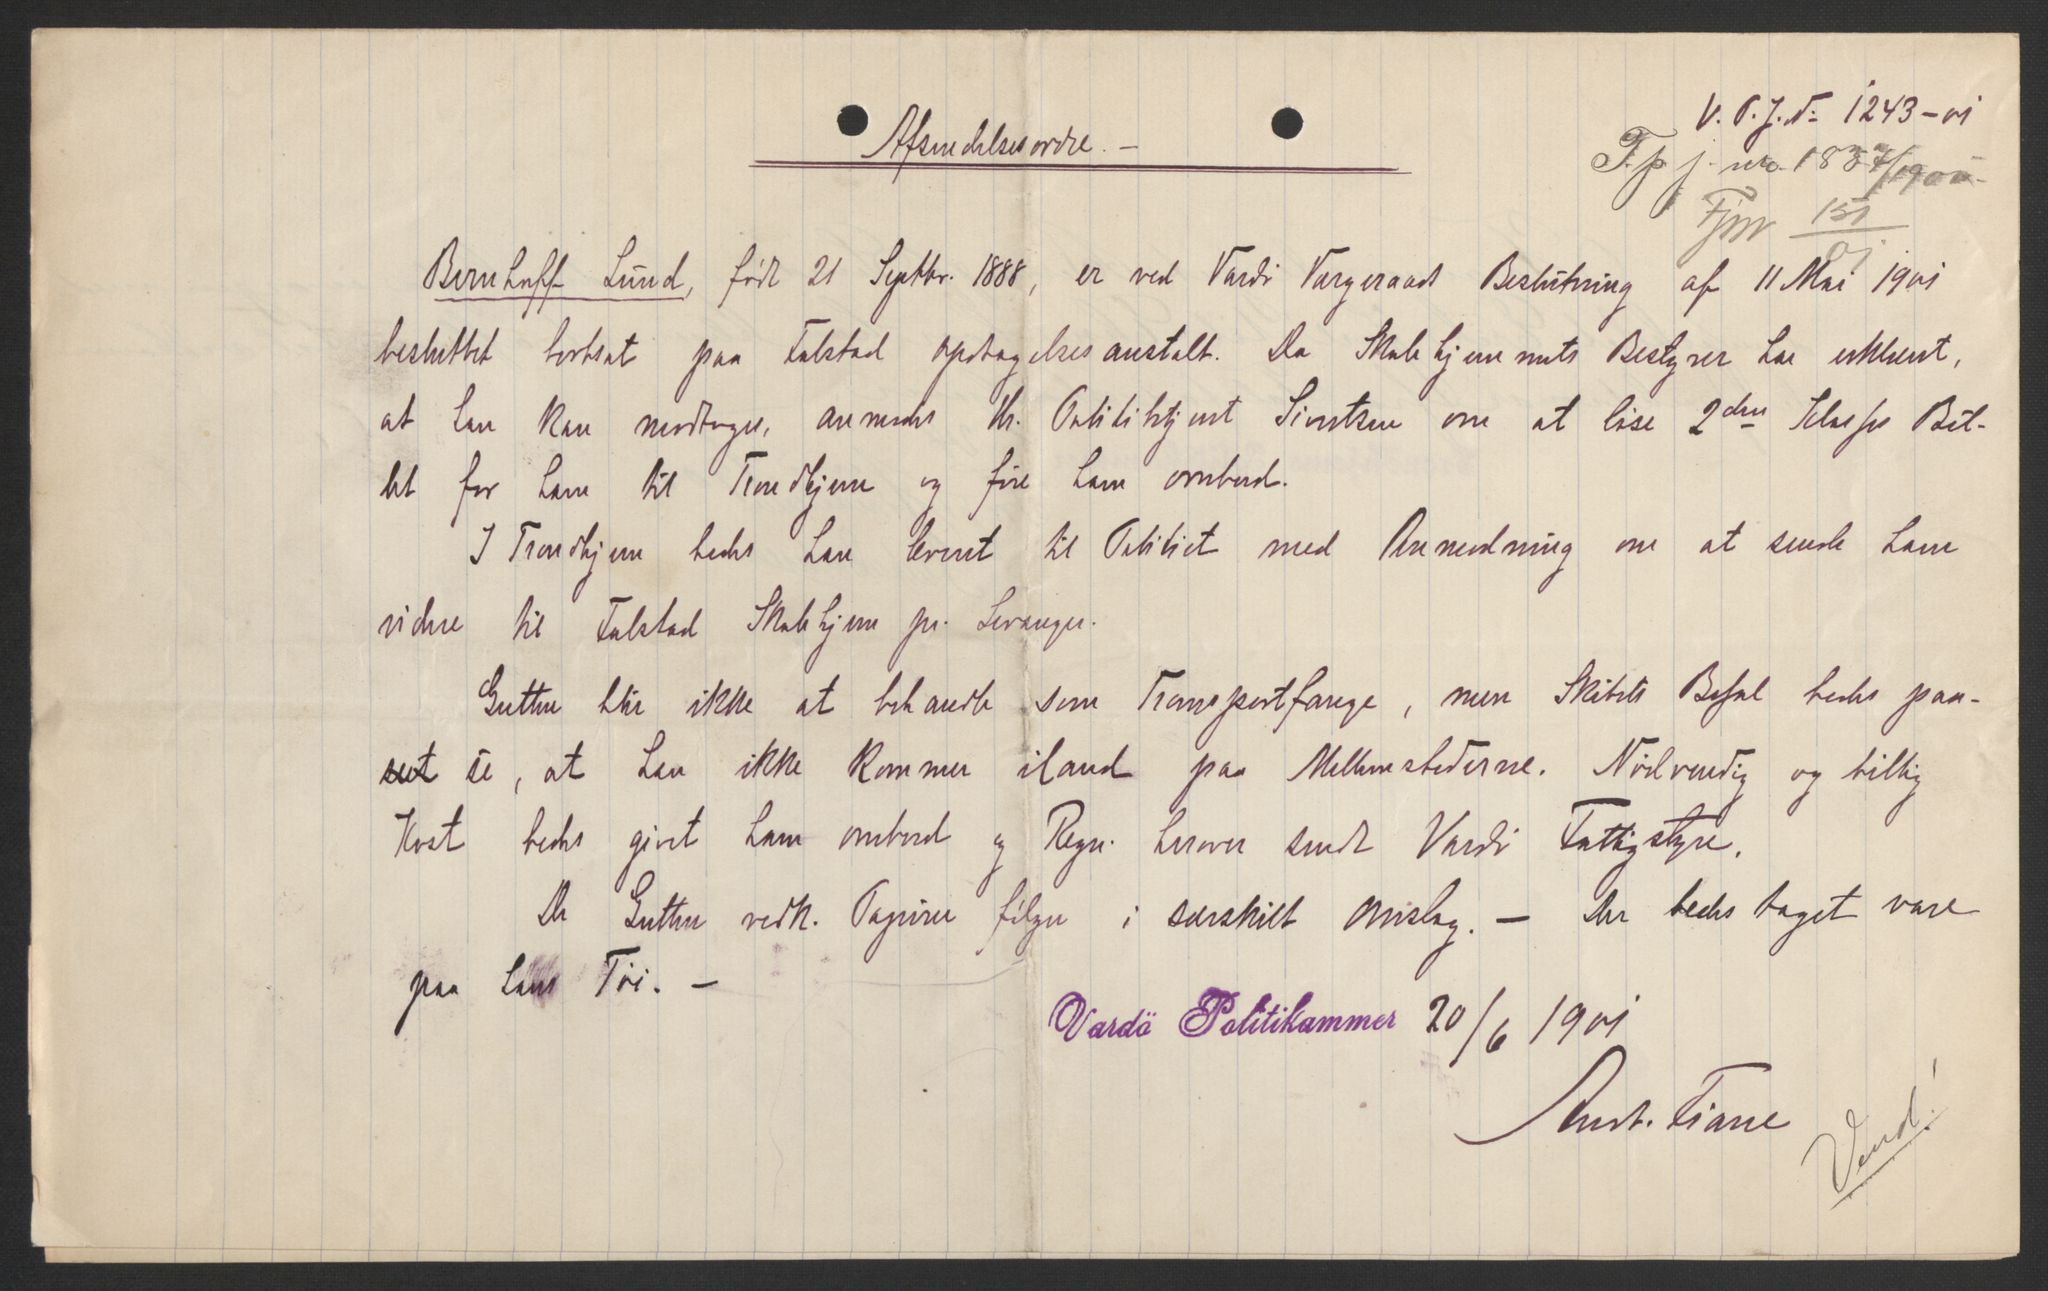 V. P. J. N: 1243-01
Afsendelsesordre. –
F. p. j. nro. 1837/1900
Fjnr 151/01
Bernhoff Lund, født 21 Septbr. 1888, er ved Vardø Værgeraads Beslutning af 11 Mai 1901
besluttet bortsat paa Falstad opdragelsesanstalt. Da Skolehjemmets Bestyrer har erklæret,
at han kan modtages, anmodes Hr. Politibetjent Sivertsen om at løse 2den Klasses Bil-
let for ham til Trondhjem og føre ham ombord.
I Trondhjem bedes han leveret til Politiet med Anmodning om at sende ham
videre til Falstad Skolehjem pr. Levanger.
Gutten blir ikke at behandle som Transportfange, men Skibets Befal bedes paa-
se, at han ikke kommer iland paa Mellemstederne. Nødvendig og billig
Kost bedes givet ham ombord og Regn. herover sendt Vardø Fattigstyre.
De Gutten vedk. Papirer følger i særskilt Omslag. – Der bedes taget vare
paa hans Tøi. –
Vardö Politikammer 20/6 1901
Anst. Fiane
Vend!